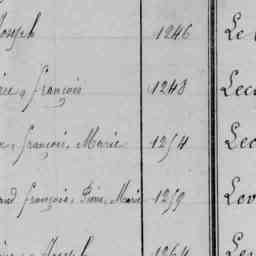 Joseph 1246 Le
François 1248 Lec
François, Marie 1254 Lec
François, Pierre, Marie 1259 Lev
Joseph 1264 Les